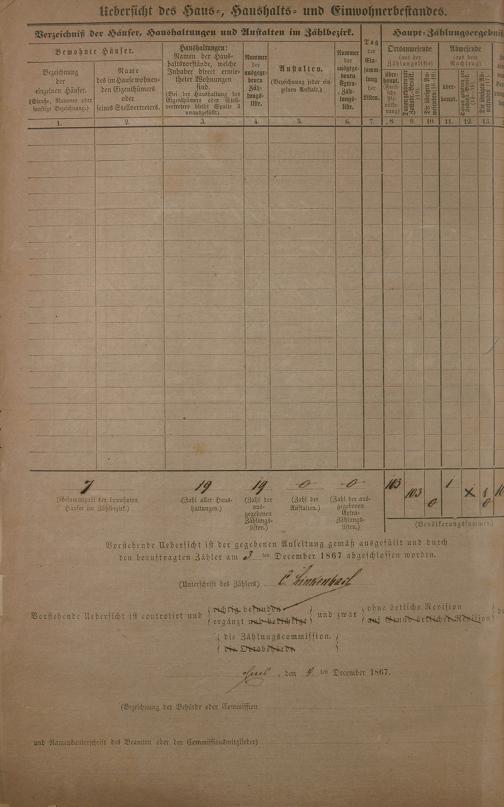 Uebersicht des Haus-, Haushalts- und Einwohnerbestandes.
Verzeichniß der Häuser, Haushaltungen und Anstalten im Zählbezirk.
Haupt-Zählungsergebni
Bewohnte Häuser.
Bezeichnung
der
einzelnen Häuser.
(Straße, Nummer oder
sonstige Bezeichnung.)
Name
des im Hause wohnen-
den Eigenthümers
oder
seines Stellvertreters.
Haushaltungen:
Namen der Haus-
haltsvorstände, welche
Inhaber direct ermie-
theter Wohnungen
sind.
(Bei der Haushaltung des
Eigenthümers oder Stell-
vertreters bleibt Spalte 3
unausgefüllt.)
Nummer
der
ausgege-
benen
Zäh-
lungs-
liste.
Anstalten.
(Bezeichnung jeder ein-
zelnen Anstalt.)
Nummer
der
ausgege-
benen
Extra-
Zäh-
lungs-
liste.
Tag
der
Ein-
samm-
lung
der
Listen.
Ortsanwesende
(aus der
Zählungsliste)
Abwesende
(aus dem
Nachtrag)
über-
haupt.
über-
haupt.
1. 2. 3. 4. 5. 6. 7. 8. 9. 10. 11. 12. 13.
7 19 19 0 0 103 103 0 1 x 1 0
(Gesammtzahl der bewohnten
Häuser im Zählbezirk.)
(Zahl aller Haus-
haltungen.)
(Zahl der
aus-
gegebenen
Zählungs-
listen.)
(Zahl der
Anstalten.)
(Zahl der aus-
gegebenen
Extra-
Zählungs-
listen.)
(Bevölkerungsnummer)
Vorstehende Uebersicht ist der gegebenen Anleitung gemäß ausgefüllt und durch
den beauftragten Zähler am 3 ten December 1867 abgeschlossen worden.
(Unterschrift des Zählers)
Vorstehende Uebersicht ist controlirt und
richtig befunden
ergänzt und berichtigt
und zwar
ohne örtliche Revision
auf Grund örtlicher Revision
die Zählungscommission.
die Ortsbehörde
, den 4. ten December 1867.
(Bezeichnung der Behörde oder Commission
und Namensunterschrift des Beamten oder der Commissionsmitglieder)